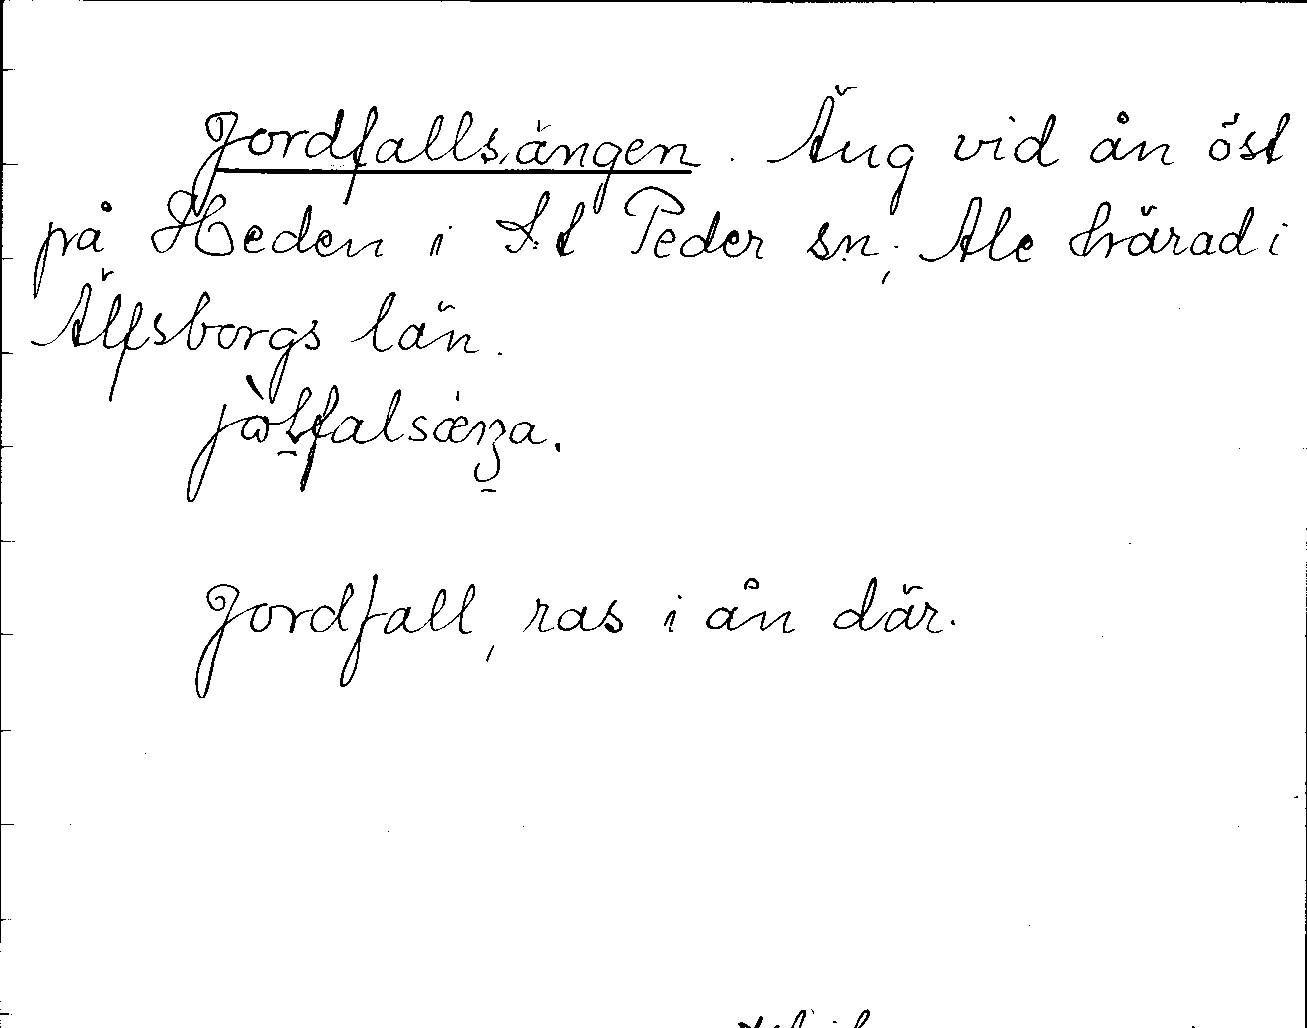 Jordfallsängen. Äng vid ån öst
på Heden i S:t Peder sn, Ale härad i
Älfsborgs län.
Jordfall, ras i ån där.